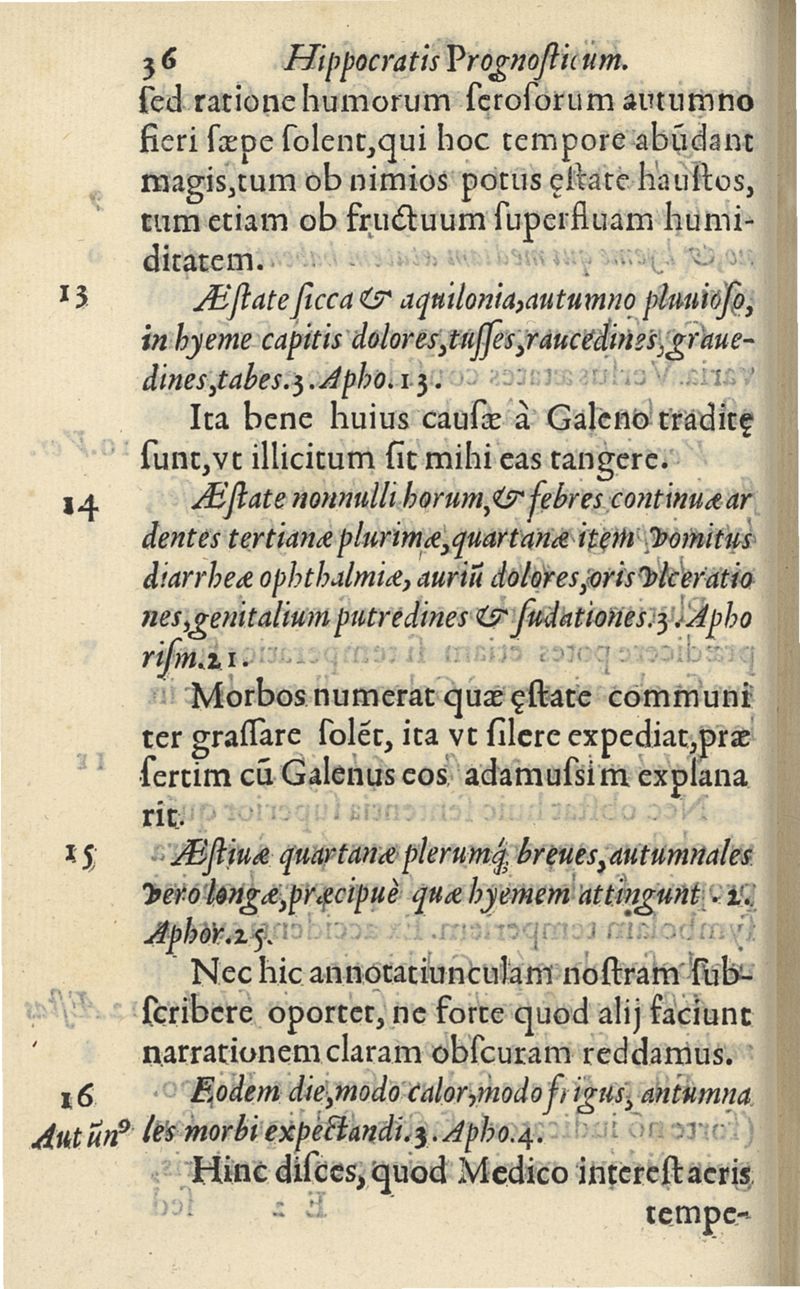 36 Hippocratis Prognosticum.
sed ratione humorum serosorum autumno
fieri sæpe solent,qui hoc tempore abũdant
magis,tum ob nimios potus ęstate haustos,
tum etiam ob fructuum superfluam humi-
ditatem.
13 Æstate sicca & aquilonia,autumno pluuioso,
in hyeme capitis dolores,tusses,raucedines,graue-
dines,tabes.3.Apho.13.
Ita bene huius causæ à Galeno traditę
sunt,vt illicitum sit mihi eas tangere.
14 Æstate nonnulli horum,& febres continuæ ar
dentes tertianæ plurimæ,quartanæ item vomitus
diarrheæ ophthalmiæ, auriũ dolores,oris vlceratio
nes,genitalium putredines & sudationes.3.Apho
rism.21.
Morbos numerat quæ ęstate communi
ter grassare solẽt, ita vt silere expediat,præ
sertim cũ Galenus eos adamussim explana
rit.
15 Æstiuæ quartanæ plerumq́; breues,autumnales
vero longæ,præcipuè quæ hyemem attingunt . 2.
Aphor.25.
Nec hic annotatiunculam nostram sub-
scribere oportet, ne forte quod alij faciunt
narrationem claram obscuram reddamus.
16 Eodem die,modo calor,modo frigus, antumna
Autũn⁹ les morbi expectandi.3.Apho.4.
Hinc disces, quod Medico interest aeris
tempe-